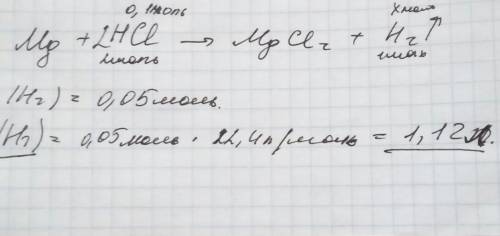 0,1моль хмоль
Mg + 2HCl → MgCl₂ + H₂↑
2моль 1моль
(H₂) = 0,05моль.
(H₂) = 0,05моль · 22,4л/моль = 1,12л.